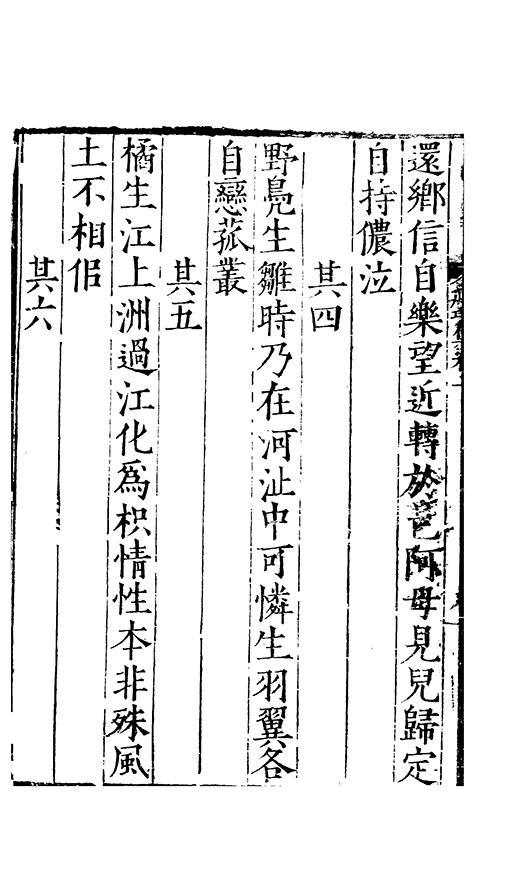 還鄉信自樂望近轉於邑阿母見兒歸定
自持儂泣
其四
野鳧生雛時乃在河沚中可憐生羽翼各
自戀菰叢
其五
橘生江上洲過江化為枳情性本非殊風
土不相侣
其六